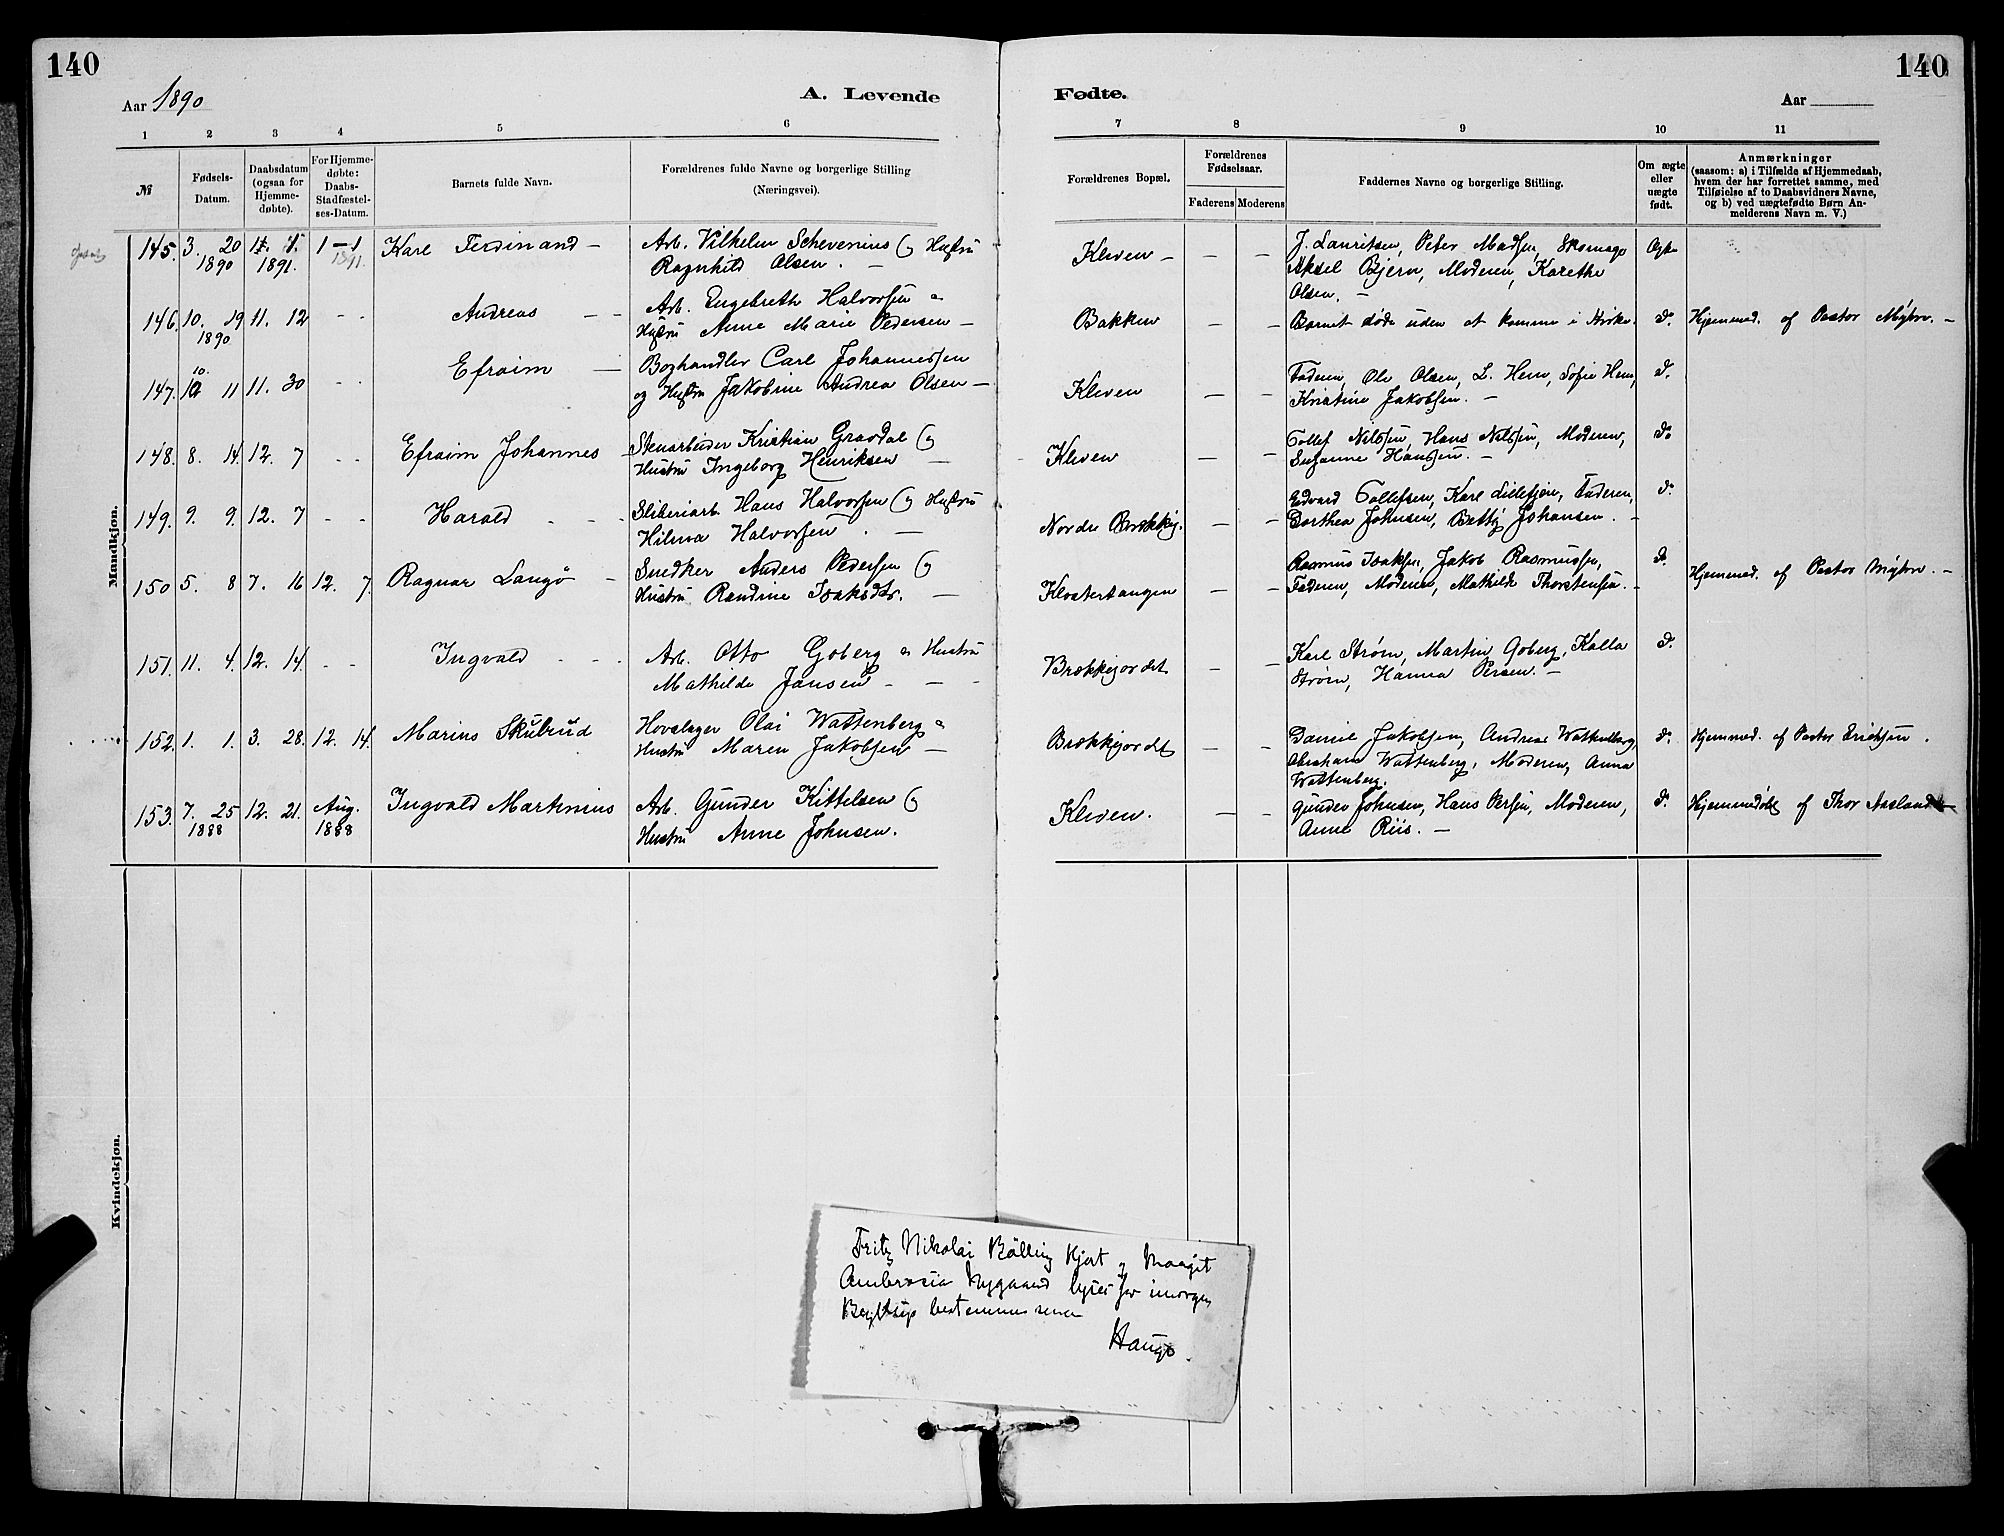 140
140
Aar 1890
A. Levende
Fødte.
Aar
1 2 3 4 5 6 7 8 9 10 11
№
Fødsels-
Datum.
Daabsdatum
(ogsaa for
Hjemme-
døbte).
For Hjemme-
døbte:
Daabs-
Stadfæstel-
ses-Datum.
Barnets fulde Navn.
Forældrenes fulde Navne og borgerlige Stilling
(Næringsvei).
Forældrenes Bopæl.
Forældrenes
Fødselsaar.
Faderens
Moderens
Faddernes Navne og borgerlige Stilling.
Om ægte
eller
uægte
født.
Anmærkninger
(saasom: a) i Tilfælde af Hjemmedaab,
hvem der har forrettet samme, med
Tilføielse af to Daabsvidners Navne,
og b) ved uægtefødte Børn An-
melderens Navn m. V.)
Mandkjøn.
145. 3. 20 1 — 1 Karl Ferdinand — Arb. Vilhelm Schevenius og Hustru
1890 1891. 1891. Ragnhild Olsen. —
Kleven — — — J. Lauritsen, Peter Madsen, Skomager
Aksel Bjern, Moderen, Karethe
Olsen. —
146. 10. 19 11. 12 - - Andreas - - Arb. Engebreth Halvorsen o
1890 Hustru Anne Marie Pedersen —
Bakken — — Barnet døde uden at komme i Kirke. do. Hjemmed. af Pastor Myhre. —
147. 10 11 11. 30 - - Efraim — Boghandler Carl Johannessen
og Hustru Jakobine Andrea Olsen —
Kleven — — Faderen, Ole Olsen, L. Hem, Sofie Hem, do.
Kristine Jakobsen. —
148. 8. 14. 12. 7 - - Efraim Johannes — Stenarbeider Kristian Gravdal og
Hustru Ingeborg Henriksen —
Kleven — — Tollef Nilssen, Hans Nilssen, Moderen, do
Susanne Hanssen. —
149. 9. 9. 12. 7 - - Harald - - - Sliberiarb. Hans Halvorsen og Hustru
Hilma Halvorsen. —
Nordre Brækkej. — — Edvard Tollefsen, Karl Lillefjøn, Faderen, do.
Dorthea Johnsen, Betty Johansen. —
150 5. 8 7. 16 12. 7. Ragnar Langø — Snedker Anders Pedersen og
Hustru Randine Isaksdtr. —
Klostertangen — — Rasmus Isaksen, Jakob Rasmussen, do.
Faderen, Moderen, Mathilde Thorstensen. — Hjemmed. af Pastor Myhre. —
151. 11. 4. 12. 14. - - Ingvald - - - Arb. Otto Goberg o Hustru
Mathilde Jansen - — -
Brækkejordet — — Karl Strøm, Martin Goberg, Kalla do.
Strøm, Hanna Persen. —
152. 1. 1. 3. 28. 12. 14. Marius Skulrud Hovslager Olai Wattenberg o
Hustru Maren Jakobsen —
Brækkejordet — — Daniel Jakobsen, Andreas Wattenberg, do. Hjemmed. af Pastor Erichsen.
Abraham Wattenberg, Moderen, Anna
Wattenberg.
153. 7. 25 12. 21. Aug. Ingvald Martinius Arb. Gunder Kittelsen og
1888 1888 Hustru Anne Johnsen.
Kleven. — — Gunder Johnsen, Hans Persen, Moderen, do. Hjemmedøbt af Thor Aasland
Anne Riis. —
Kvindekjøn.
Fritz Nikolai Bølling Hjort og Maagit
Ambrosia Nygaard lyses for imorgen
bestemmes senere
Hauge.